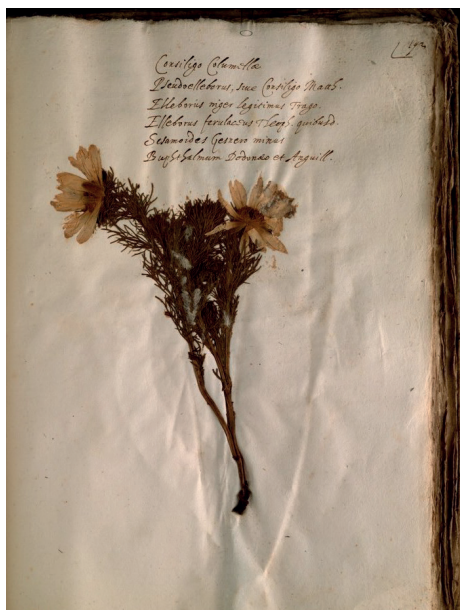 Consiligo Columellæ
Pseudoelleborus, siue Consiligo Math.
Elleborus niger legitimus Trago.
Elleborus ferulaceus Theoph. quibusd.
Sesamoides Gesnero minus
Buphthalmum Dodonæo et Anguill.